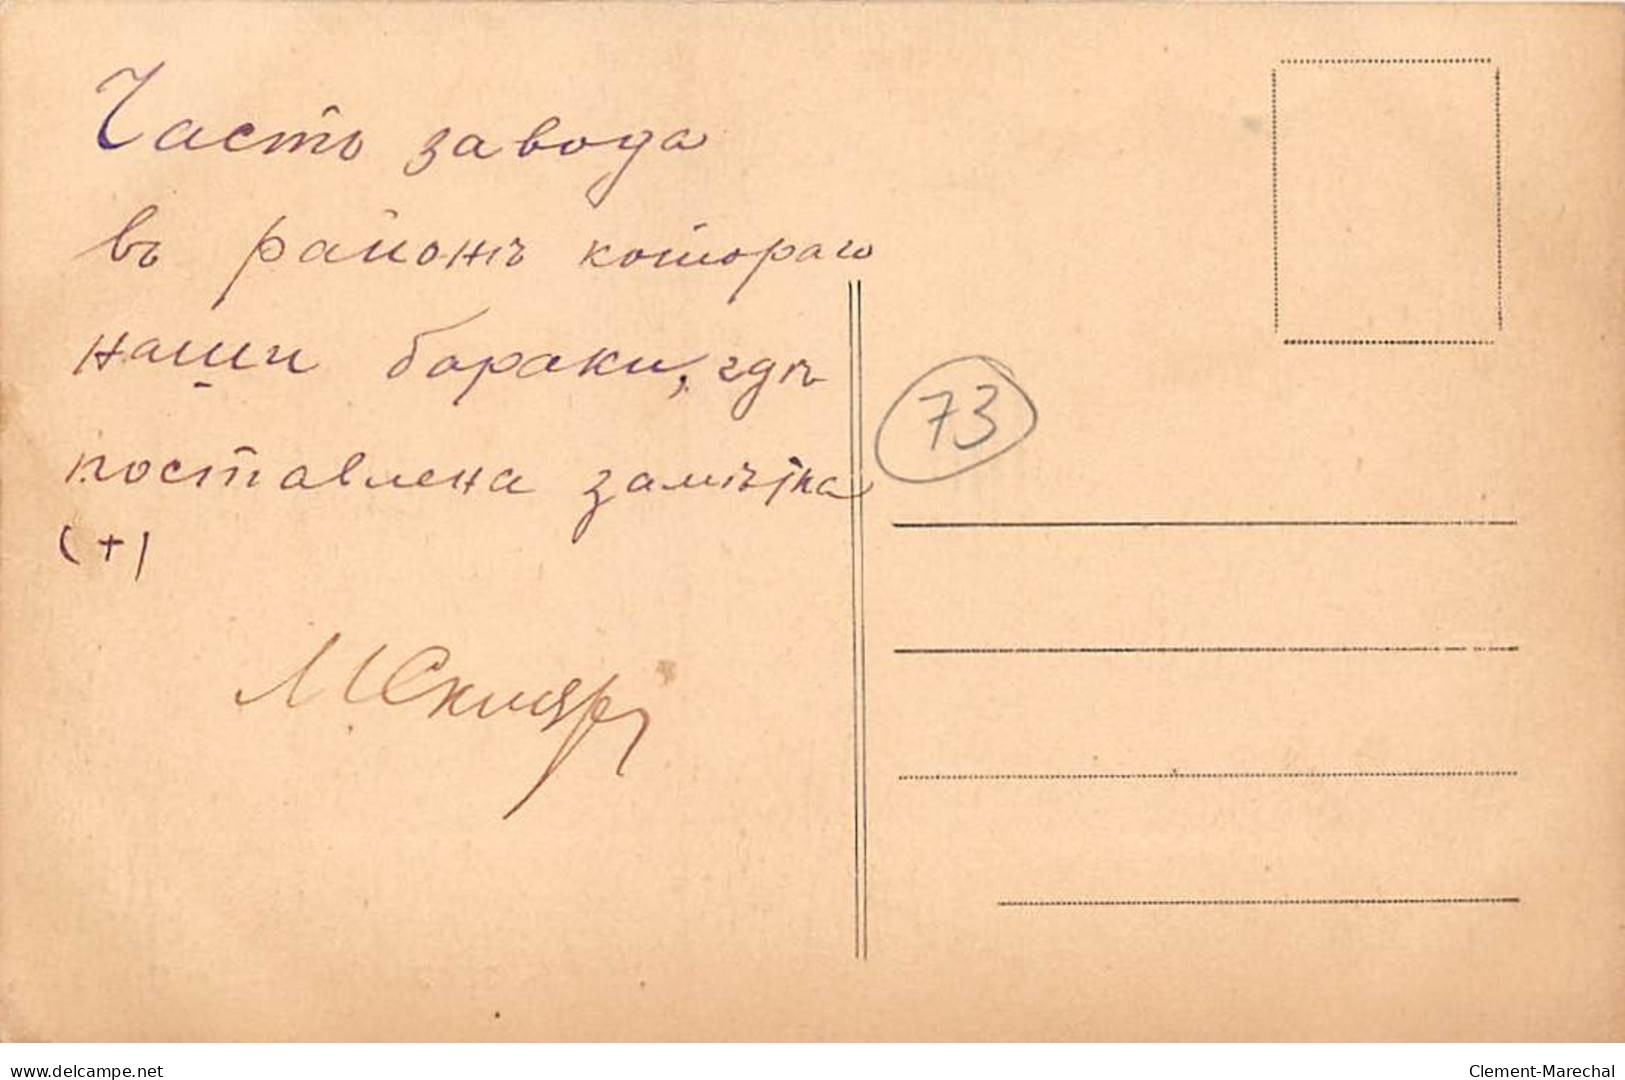 Часть завода
въ районѣ котораго
наши бараки, гдѣ
поставлена замѣтка
(+)
М Скляр
73
www.delcampe.net
Clement-Marechal